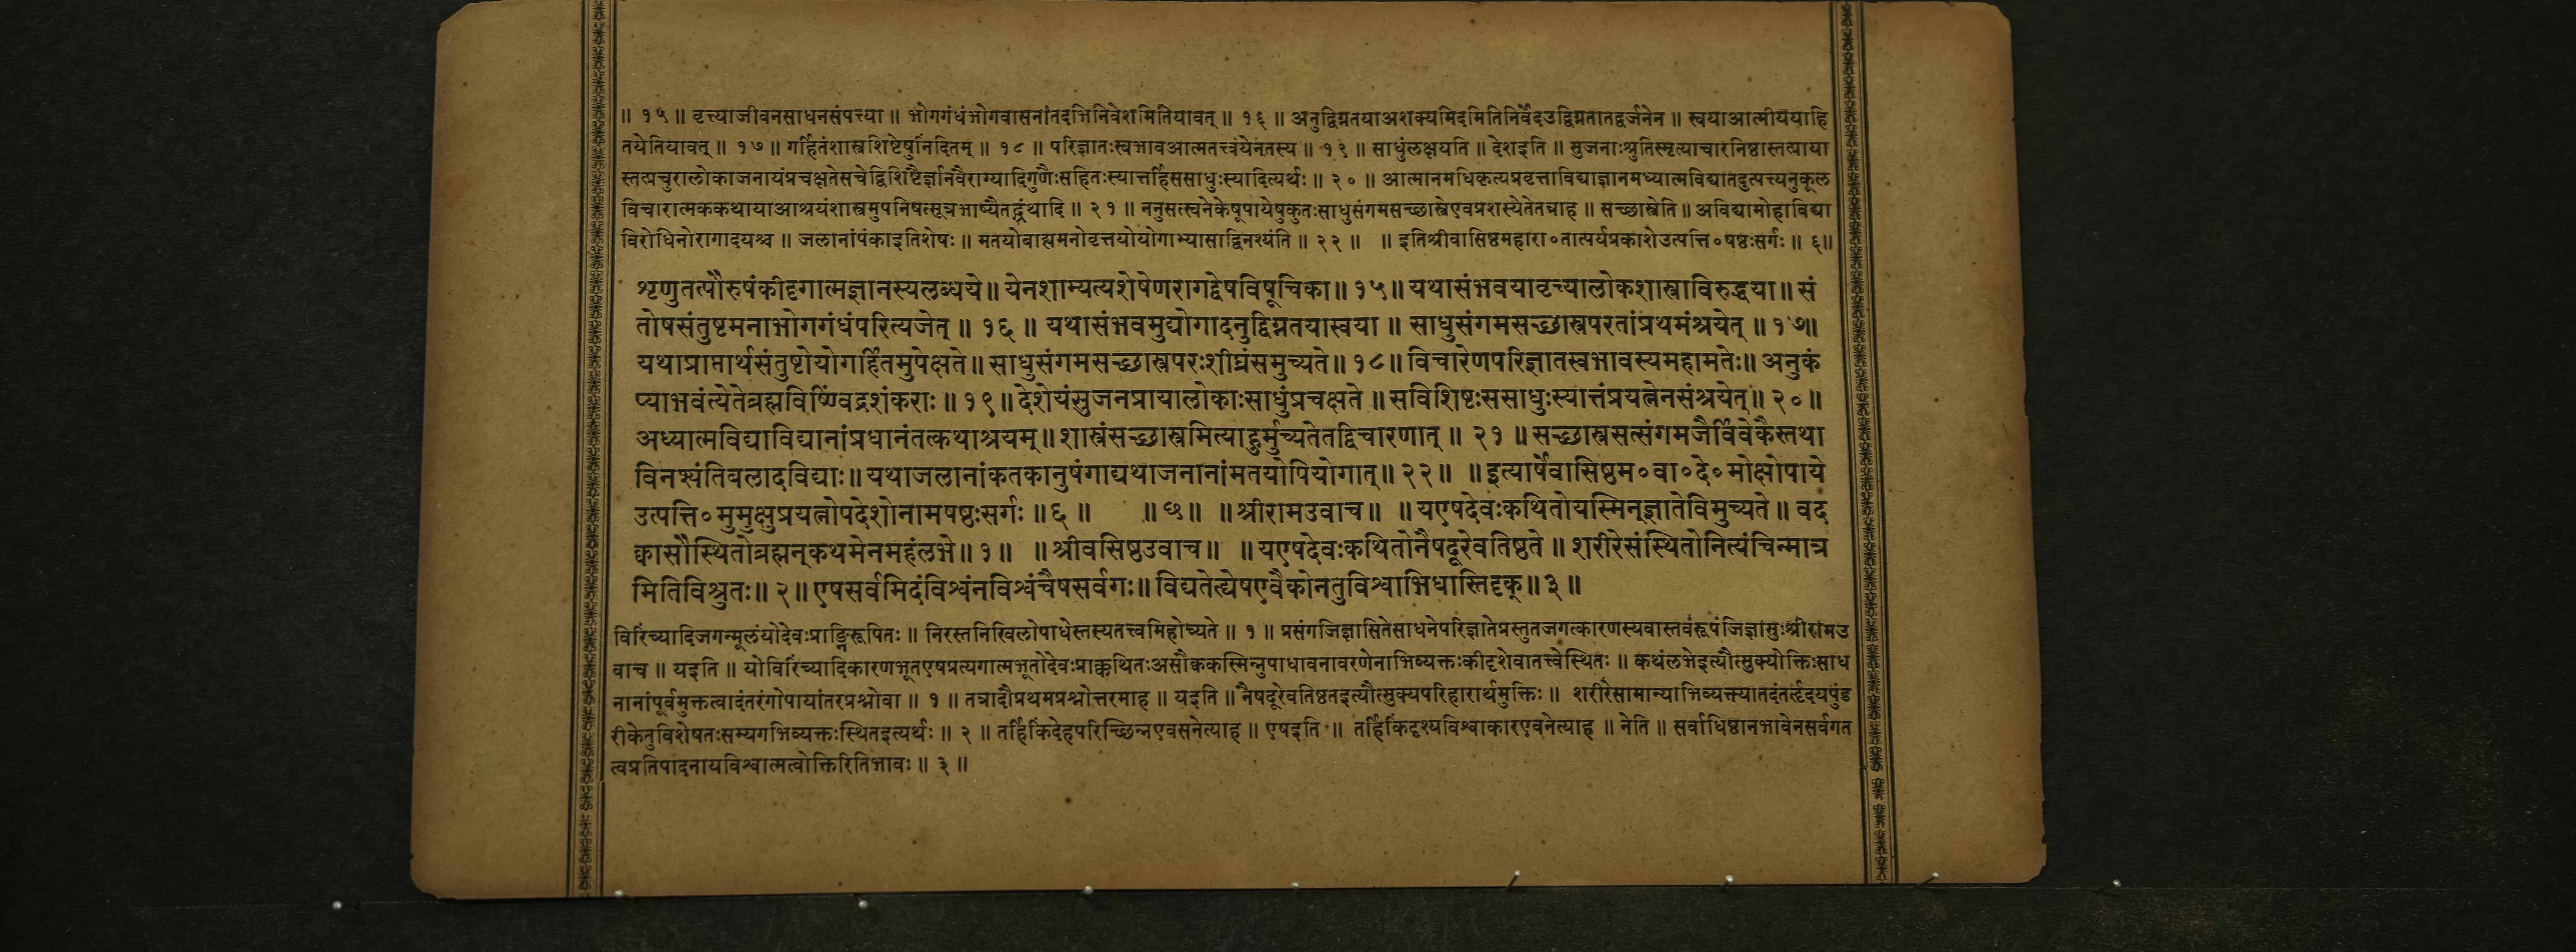 ॥ १५ ॥ वृत्त्याजीवनसाधनसंपत्त्या ॥ भोगगंधंभोगवासनांतदभिनिवेशमितियावत् ॥ १६ ॥ अनुद्विग्नतयाअशक्यमिदमितिनिर्वेदउद्विग्नतातद्वर्जनेन ॥ स्वयाआत्मीययाहि
तयेतियावत् ॥ १७ ॥ गर्हितंशास्त्रशिष्टेषुनिंदितम् ॥ १८ ॥ परिज्ञातःस्वभावआत्मतत्त्वंयेनतस्य ॥ १९ ॥ साधुंलक्षयति ॥ देशइति ॥ सुजनाःश्रुतिस्मृत्याचारनिष्ठास्तत्प्राया
स्तत्प्रचुरालोकाजनायंप्रचक्षतेसचेद्विशिष्टैर्ज्ञानवैराग्यादिगुणैःसहितःस्यात्तर्हिससाधुःस्यादित्यर्थः ॥ २० ॥ आत्मानमधिकृत्यप्रवृत्ताविद्याज्ञानमध्यात्मविद्यातदुत्पत्त्यनुकूल
विचारात्मककथायाआश्रयंशास्त्रमुपनिषत्सूत्रभाष्यैतद्ग्रंथादि ॥ २१ ॥ ननुसत्स्वनेकेषूपायेषुकुतःसाधुसंगमसच्छास्त्रेएवप्रशस्येतेतत्राह ॥ सच्छास्त्रेति ॥ अविद्यामोहाविद्या
विरोधिनोरागादयश्च ॥ जलानांपंकाइतिशेषः ॥ मतयोबाह्यमनोवृत्तयोयोगाभ्यासाद्विनश्यंति ॥ २२ ॥ ॥ इतिश्रीवासिष्ठमहारा०तात्पर्यप्रकाशेउत्पत्ति०षष्ठःसर्गः ॥ ६॥
शृणुतत्पौरुषंकीदृगात्मज्ञानस्यलब्धये॥ येनशाम्यत्यशेषेणरागद्वेषविषूचिका॥ १५॥ यथासंभवयावृत्त्यालोकशास्त्राविरुद्धया॥ सं
तोषसंतुष्टमनाभोगगंधंपरित्यजेत् ॥ १६ ॥ यथासंभवमुद्योगादनुद्विग्नतयास्वया ॥ साधुसंगमसच्छास्त्रपरतांप्रथमंश्रयेत् ॥ १७॥
यथाप्राप्तार्थसंतुष्टोयोगर्हितमुपेक्षते॥ साधुसंगमसच्छास्त्रपरःशीघ्रंसमुच्यते॥ १८॥ विचारेणपरिज्ञातस्वभावस्यमहामतेः॥ अनुकं
प्याभवंत्येतेब्रह्मविष्ण्विंद्रशंकराः ॥ १९॥ देशेयंसुजनप्रायालोकाःसाधुंप्रचक्षते ॥ सविशिष्टःससाधुःस्यात्तंप्रयत्नेनसंश्रयेत्॥ २० ॥
अध्यात्मविद्याविद्यानांप्रधानंतत्कथाश्रयम्॥ शास्त्रंसच्छास्त्रमित्याहुर्मुच्यतेतद्विचारणात् ॥ २१ ॥ सच्छास्त्रसत्संगमजैर्विवेकैस्तथा
विनश्यंतिबलादविद्याः॥ यथाजलानांकतकानुषंगाद्यथाजनानांमतयोपियोगात्॥ २२॥ ॥ इत्यार्षेवासिष्ठम०वा०दे०मोक्षोपाये
उत्पत्ति०मुमुक्षुप्रयत्नोपदेशोनामषष्ठःसर्गः ॥ ६ ॥ ॥ छ॥ ॥ श्रीरामउवाच॥ ॥ यएषदेवःकथितोयस्मिन्ज्ञातेविमुच्यते॥ वद
क्वासौस्थितोब्रह्मन्कथमेनमहंलभे॥ १॥ ॥ श्रीवसिष्ठउवाच॥ ॥ यएषदेवःकथितोनैषदूरेवतिष्ठते ॥ शरीरेसंस्थितोनित्यंचिन्मात्र
मितिविश्रुतः॥ २॥ एषसर्वमिदंविश्वंनविश्वंचैषसर्वगः॥ विद्यतेत्द्येषएवैकोनतुविश्वाभिधास्तिदृक्॥ ३ ॥
विरिंच्यादिजगन्मूलंयोदेवःप्राङ्निरूपितः ॥ निरस्तनिखिलोपाधेस्तस्यतत्त्वमिहोच्यते ॥ १ ॥ प्रसंगजिज्ञासितेसाधनेपरिज्ञातेप्रस्तुतजगत्कारणस्यवास्तवंरूपंजिज्ञासुःश्रीरामउ
वाच ॥ यइति ॥ योविरिंच्यादिकारणभूतएषप्रत्यगात्मभूतोदेवःप्राक्कथितःअसौक्वकस्मिन्नुपाधावनावरणेनाभिव्यक्तःकीदृशेवातत्त्वेस्थितः ॥ कथंलभेइत्यौत्सुक्योक्तिःसाध
नानांपूर्वमुक्तत्वादंतरंगोपायांतरप्रश्नोवा ॥ १ ॥ तत्रादौप्रथमप्रश्नोत्तरमाह ॥ यइति ॥ नैषदूरेवतिष्ठतइत्यौत्सुक्यपरिहारार्थमुक्तिः ॥ शरीरेसामान्याभिव्यक्त्यातदंतर्त्दृदयपुंड
रीकेतुविशेषतःसम्यगभिव्यक्तःस्थितइत्यर्थः ॥ २ ॥ तर्हिकिंदेहपरिच्छिन्नएवसनेत्याह ॥ एषइति ॥ तर्हिकिंदृश्यविश्वाकारएवनेत्याह ॥ नेति ॥ सर्वाधिष्ठानभावेनसर्वगत
त्वप्रतिपादनायविश्वात्मत्वोक्तिरितिभावः ॥ ३ ॥